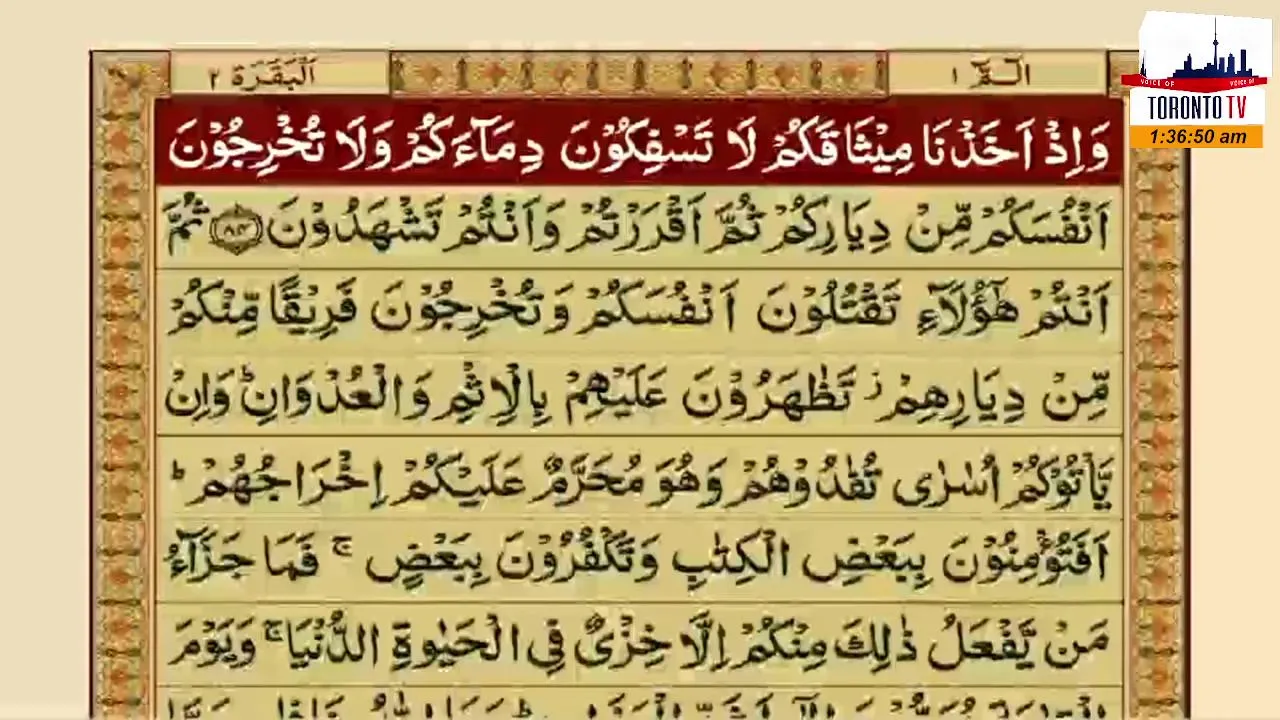 اَلْبَقَرَة ٢
الٓمّٓ ١
VOICE OF
VOICE OF
TORONTO TV
1:36:50 am
وَاِذْ اَخَذْنَا مِيْثَاقَكُمْ لَا تَسْفِكُوْنَ دِمَآءَكُمْ وَلَا تُخْرِجُوْنَ
اَنْفُسَكُمْ مِّنْ دِيَارِكُمْ ثُمَّ اَقْرَرْتُمْ وَاَنْتُمْ تَشْهَدُوْنَ ﴿۸۴﴾ ثُمَّ
اَنْتُمْ هٰٓؤُلَآءِ تَقْتُلُوْنَ اَنْفُسَكُمْ وَتُخْرِجُوْنَ فَرِيْقًا مِّنْكُمْ
مِّنْ دِيَارِهِمْ ز تَظٰهَرُوْنَ عَلَيْهِمْ بِالْاِثْمِ وَالْعُدْوَانِ ؕ وَاِنْ
يَّاْتُوْكُمْ اُسٰرٰى تُفٰدُوْهُمْ وَهُوَ مُحَرَّمٌ عَلَيْكُمْ اِخْرَاجُهُمْ ؕ
اَفَتُؤْمِنُوْنَ بِبَعْضِ الْكِتٰبِ وَتَكْفُرُوْنَ بِبَعْضٍ ۚ فَمَا جَزَآءُ
مَنْ يَّفْعَلُ ذٰلِكَ مِنْكُمْ اِلَّا خِزْىٌ فِى الْحَيٰوةِ الدُّنْيَا ۚ وَيَوْمَ